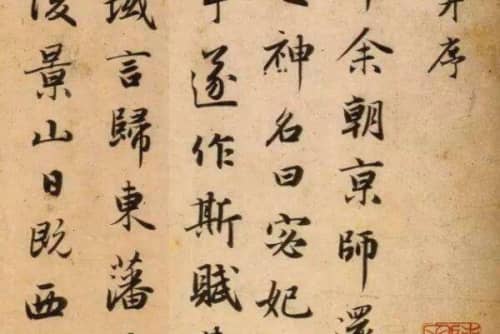 并序
余朝京師還
神名曰宓妃
遂作斯賦
域言歸東藩
景山日既西